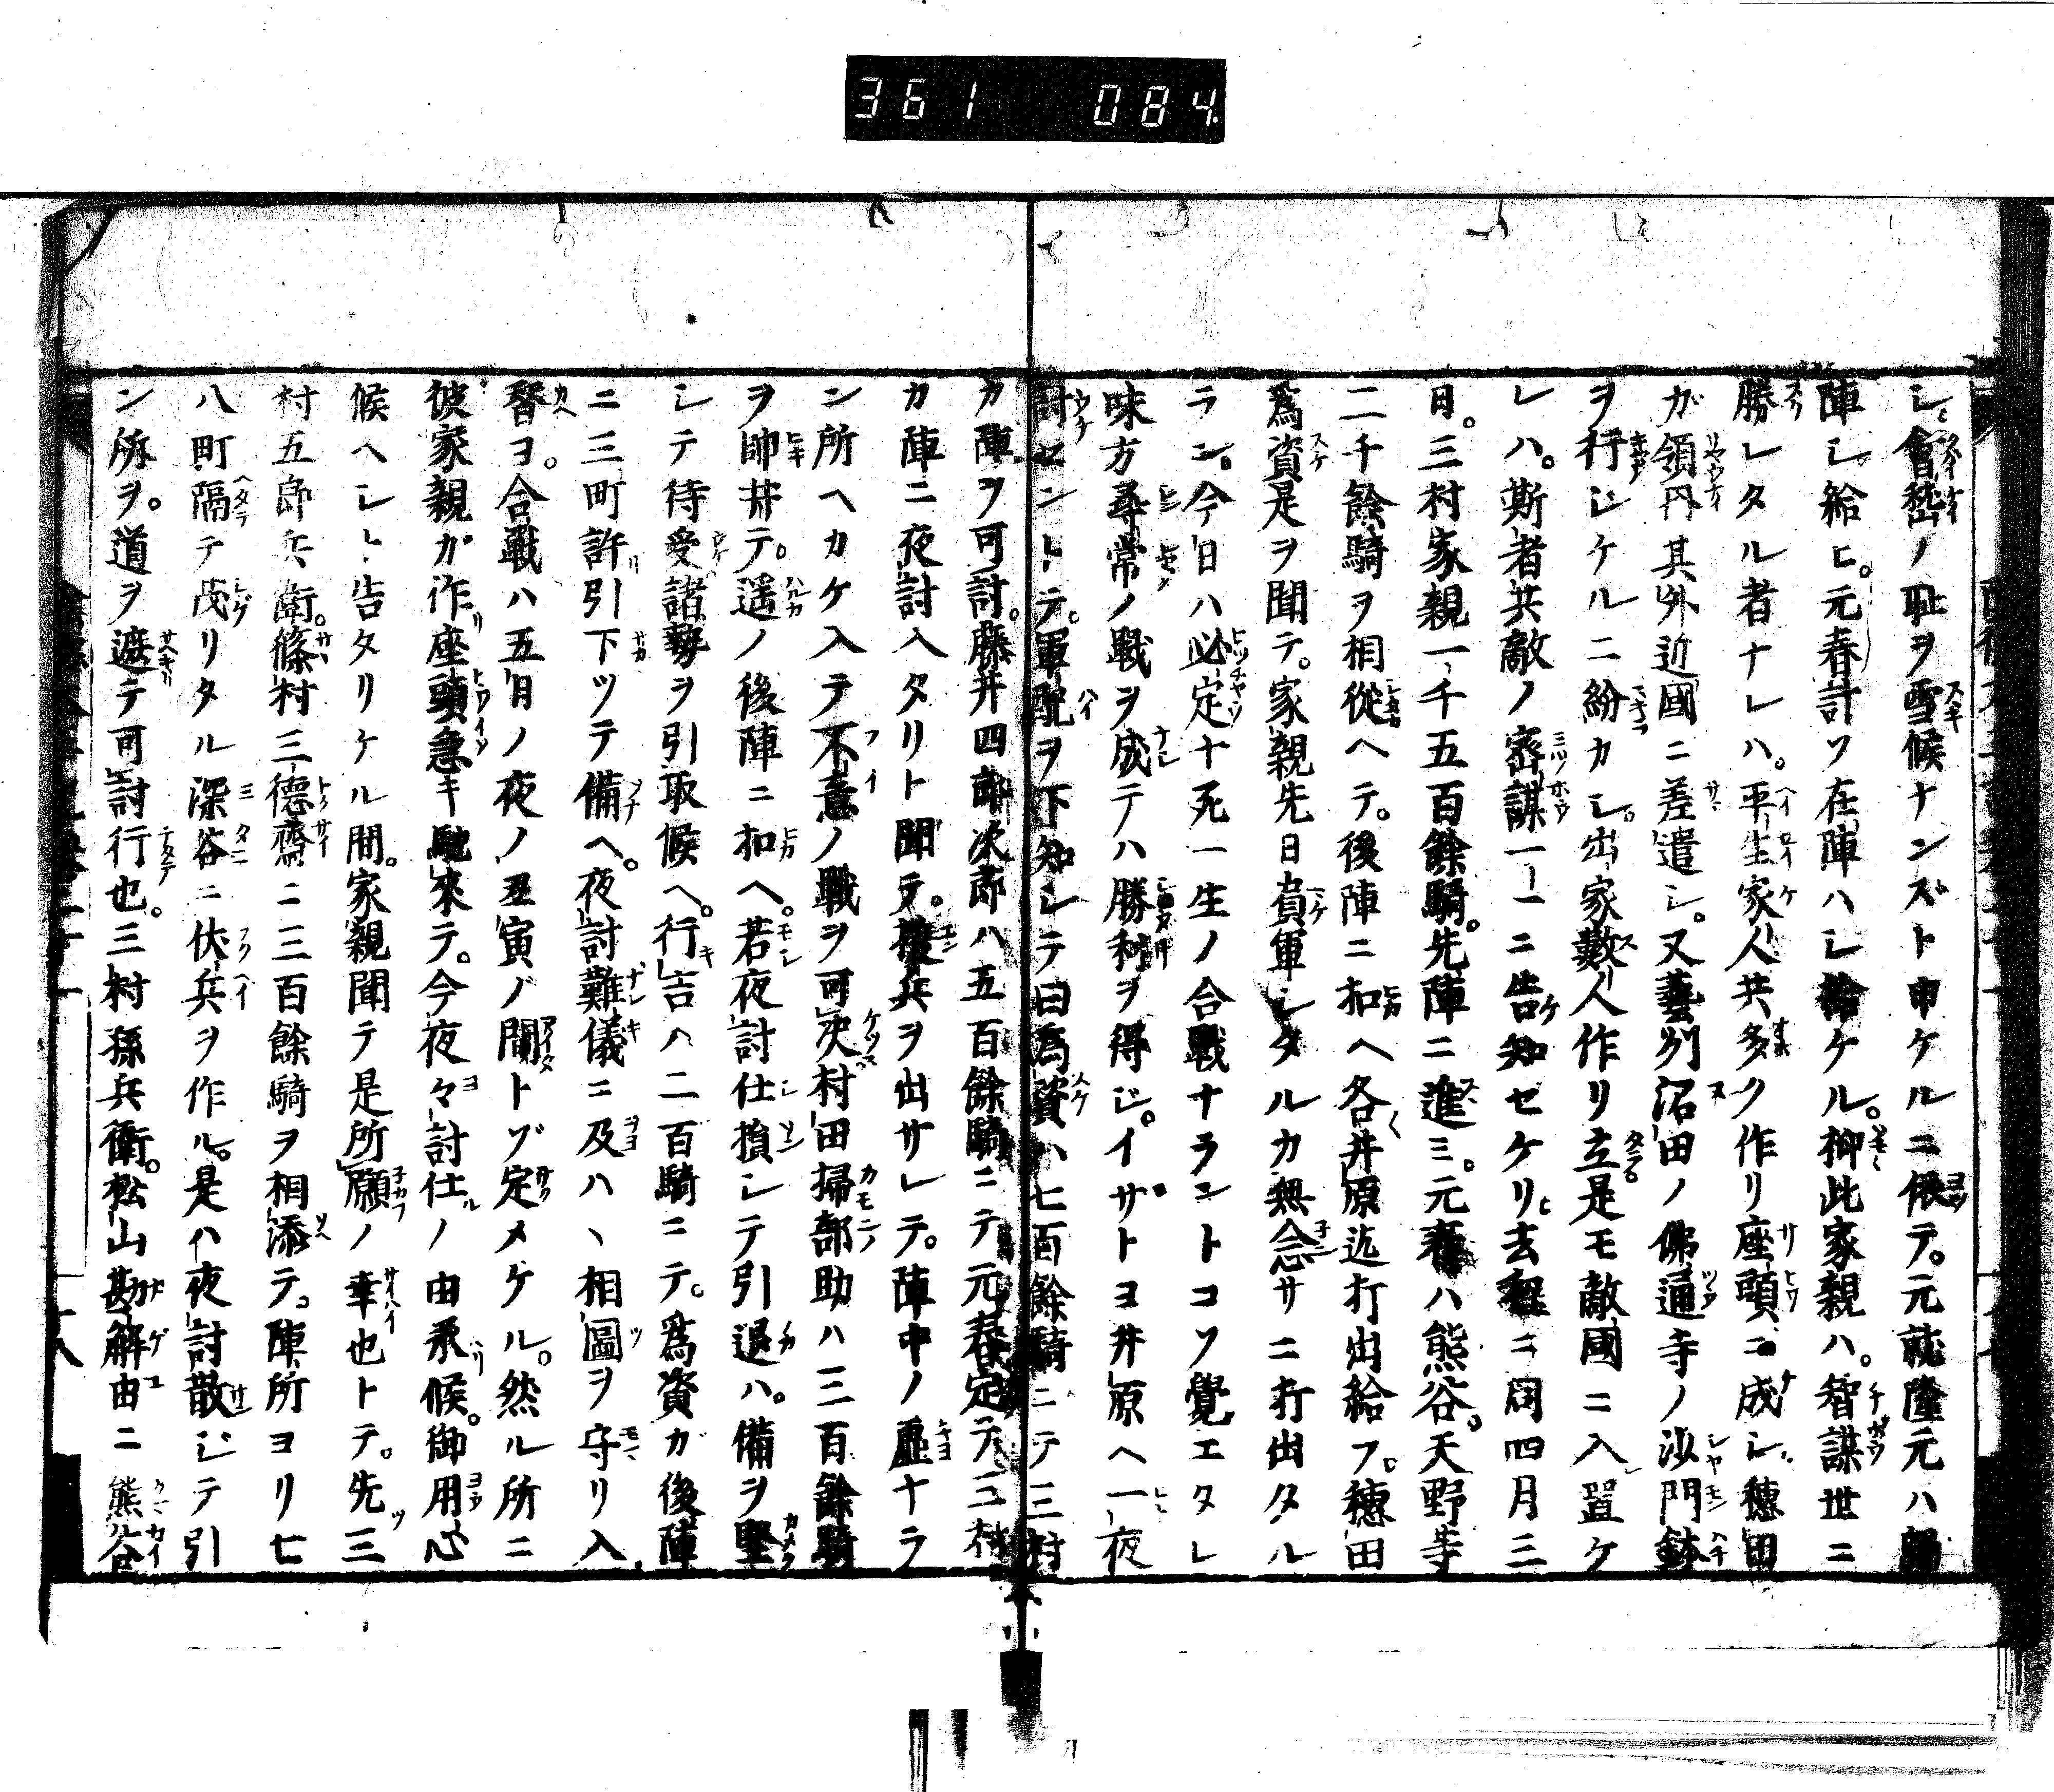 361 084
シ。會稽ノ耻ヲ雪候ナンズト申ケルニ依テ。元就隆元ハ歸
陣シ給ヒ。元春計ソ在陣ハシ給ケル。抑此家親ハ。智謀世ニ
勝レタル者ナレハ。平生家人共多ク作リ座頭ニ成シ。穗田
ガ領内其外近國ニ差遣シ。又藝列沼田ノ佛通寺ノ沙門鉢
ヲ行シケルニ紛カシ。出家數人作リ立是モ敵國ニ入置ケ
レハ。斯者共敵ノ密謀一一ニ告知セケリ去程ニ同四月三
日。三村家親一千五百餘騎。先陣ニ進ミ。元春ハ熊谷。天野等
二千餘騎ヲ相從ヘテ。後陣ニ扣ヘ各井原迄打出給フ。穗田
爲資是ヲ聞テ。家親先日負軍シタルカ無念サニ打出タル
ラン。今日ハ必定十死一生ノ合戰ナラントコソ覺エタレ
味方尋常ノ戰ヲ成テハ勝利ヲ得シ。イサトヨ井原ヘ一夜
討センドテ。軍配ヲ下知シテ曰爲資ハ七百餘騎ニテ三村
カ陣ヲ可討。藤井四郎次郎ハ五百餘騎ニテ元春定テ三村
カ陣ニ夜討入タリト聞テ。援兵ヲ出サレテ。陣中ノ虛ナラ
ン所ヘカケ入テ不意ノ戰ヲ可決村田掃部助ハ三百餘騎
ヲ帥井テ。遥ノ後陣ニ扣ヘ。若夜討仕損シテ引退ハ。備ヲ堅
シテ待受諸勢ヲ引取候ヘ。行吉ハ二百騎ニテ。爲資ガ後陣
ニ三町許引下ツテ備ヘ。夜討難儀ニ及ハヽ相圖ヲ守リ入
替ヨ。合戰ハ五月ノ夜ノ丑寅ノ間トゾ定メケル。然ル所ニ
彼家親ガ作座頭急キ馳來テ。今夜々討仕ノ由承候。御用心
候ヘシト告タリケル間。家親聞テ是所願ノ幸也トテ。先三
村五郎兵衛。篠村三德齋ニ三百餘騎ヲ相添テ。陣所ヨリ七
八町隔テ茂リタル深谷ニ伏兵ヲ作ル。是ハ夜討散シテ引
ン所ヲ。道ヲ遮テ可討行也。三村孫兵衛。松山勘解由ニ熊谷
十八